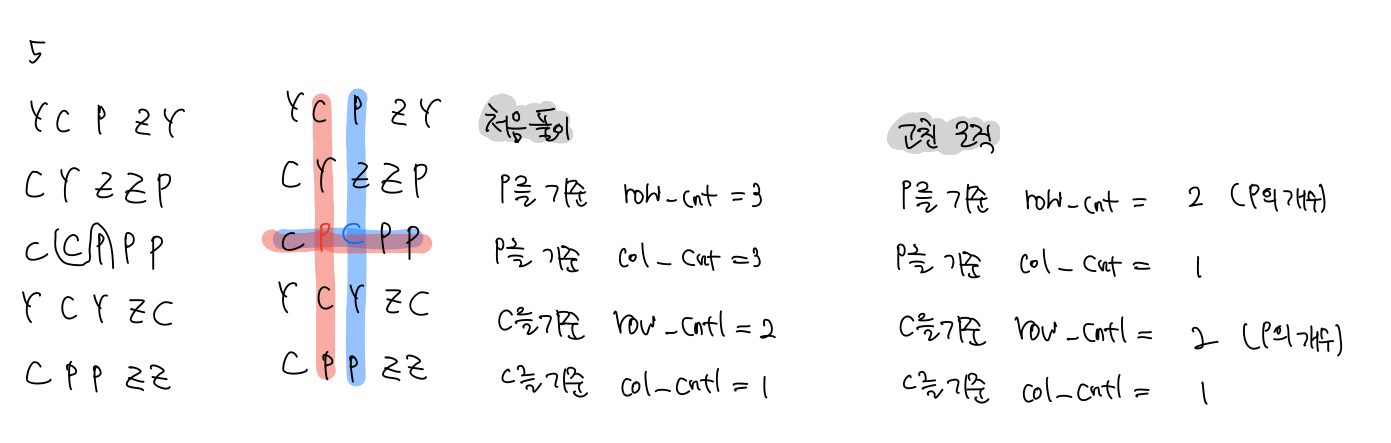 5
Y C P Z Y
C Y Z Z P
C C P P P
Y C Y Z C
C P P Z Z
Y C P Z Y
C Y Z Z P
C P C P P
Y C Y Z C
C P P Z Z
처음 풀이
P를 기준 row_cnt = 3
P를 기준 col_cnt = 3
C를 기준 row_cnt1 = 2
C를 기준 col_cnt1 = 1
고친 로직
P를 기준 row_cnt = 2 (P의 개수)
P를 기준 col_cnt = 1
C를 기준 row_cnt1 = 2 (P의 개수)
C를 기준 col_cnt1 = 1